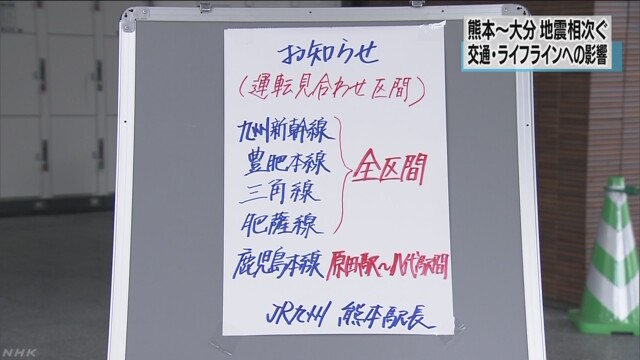 熊本～大分 地震相次ぐ
交通・ライフラインへの影響
お知らせ
(運転見合わせ区間)
九州新幹線
豊肥本線
三角線
肥薩線
全区間
鹿児島本線 原田駅～八代駅間
JR九州 熊本駅長
NHK